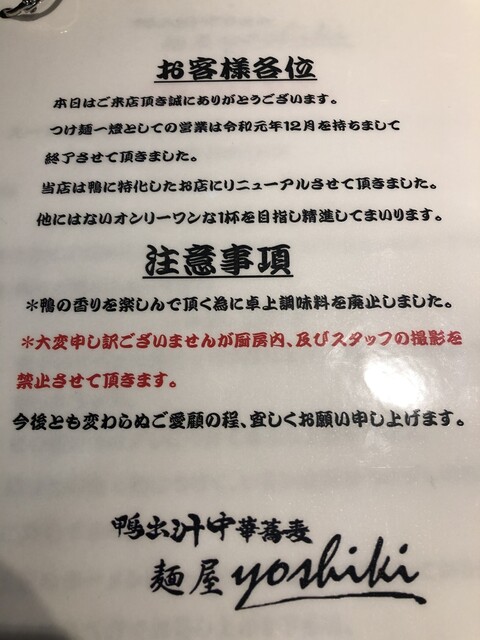 お客様各位
本日はご来店頂き誠にありがとうございます。
つけ麺一燈としての営業は令和元年12月を持ちまして
終了させて頂きました。
当店は鴨に特化したお店にリニューアルさせて頂きました。
他にはないオンリーワンな1杯を目指し精進してまいります。
注意事項
＊鴨の香りを楽しんで頂く為に卓上調味料を廃止しました。
＊大変申し訳ございませんが厨房内、及びスタッフの撮影を
禁止させて頂きます。
今後とも変わらぬご愛顧の程、宜しくお願い申し上げます。
鴨出汁中華蕎麦
麺屋yoshiki